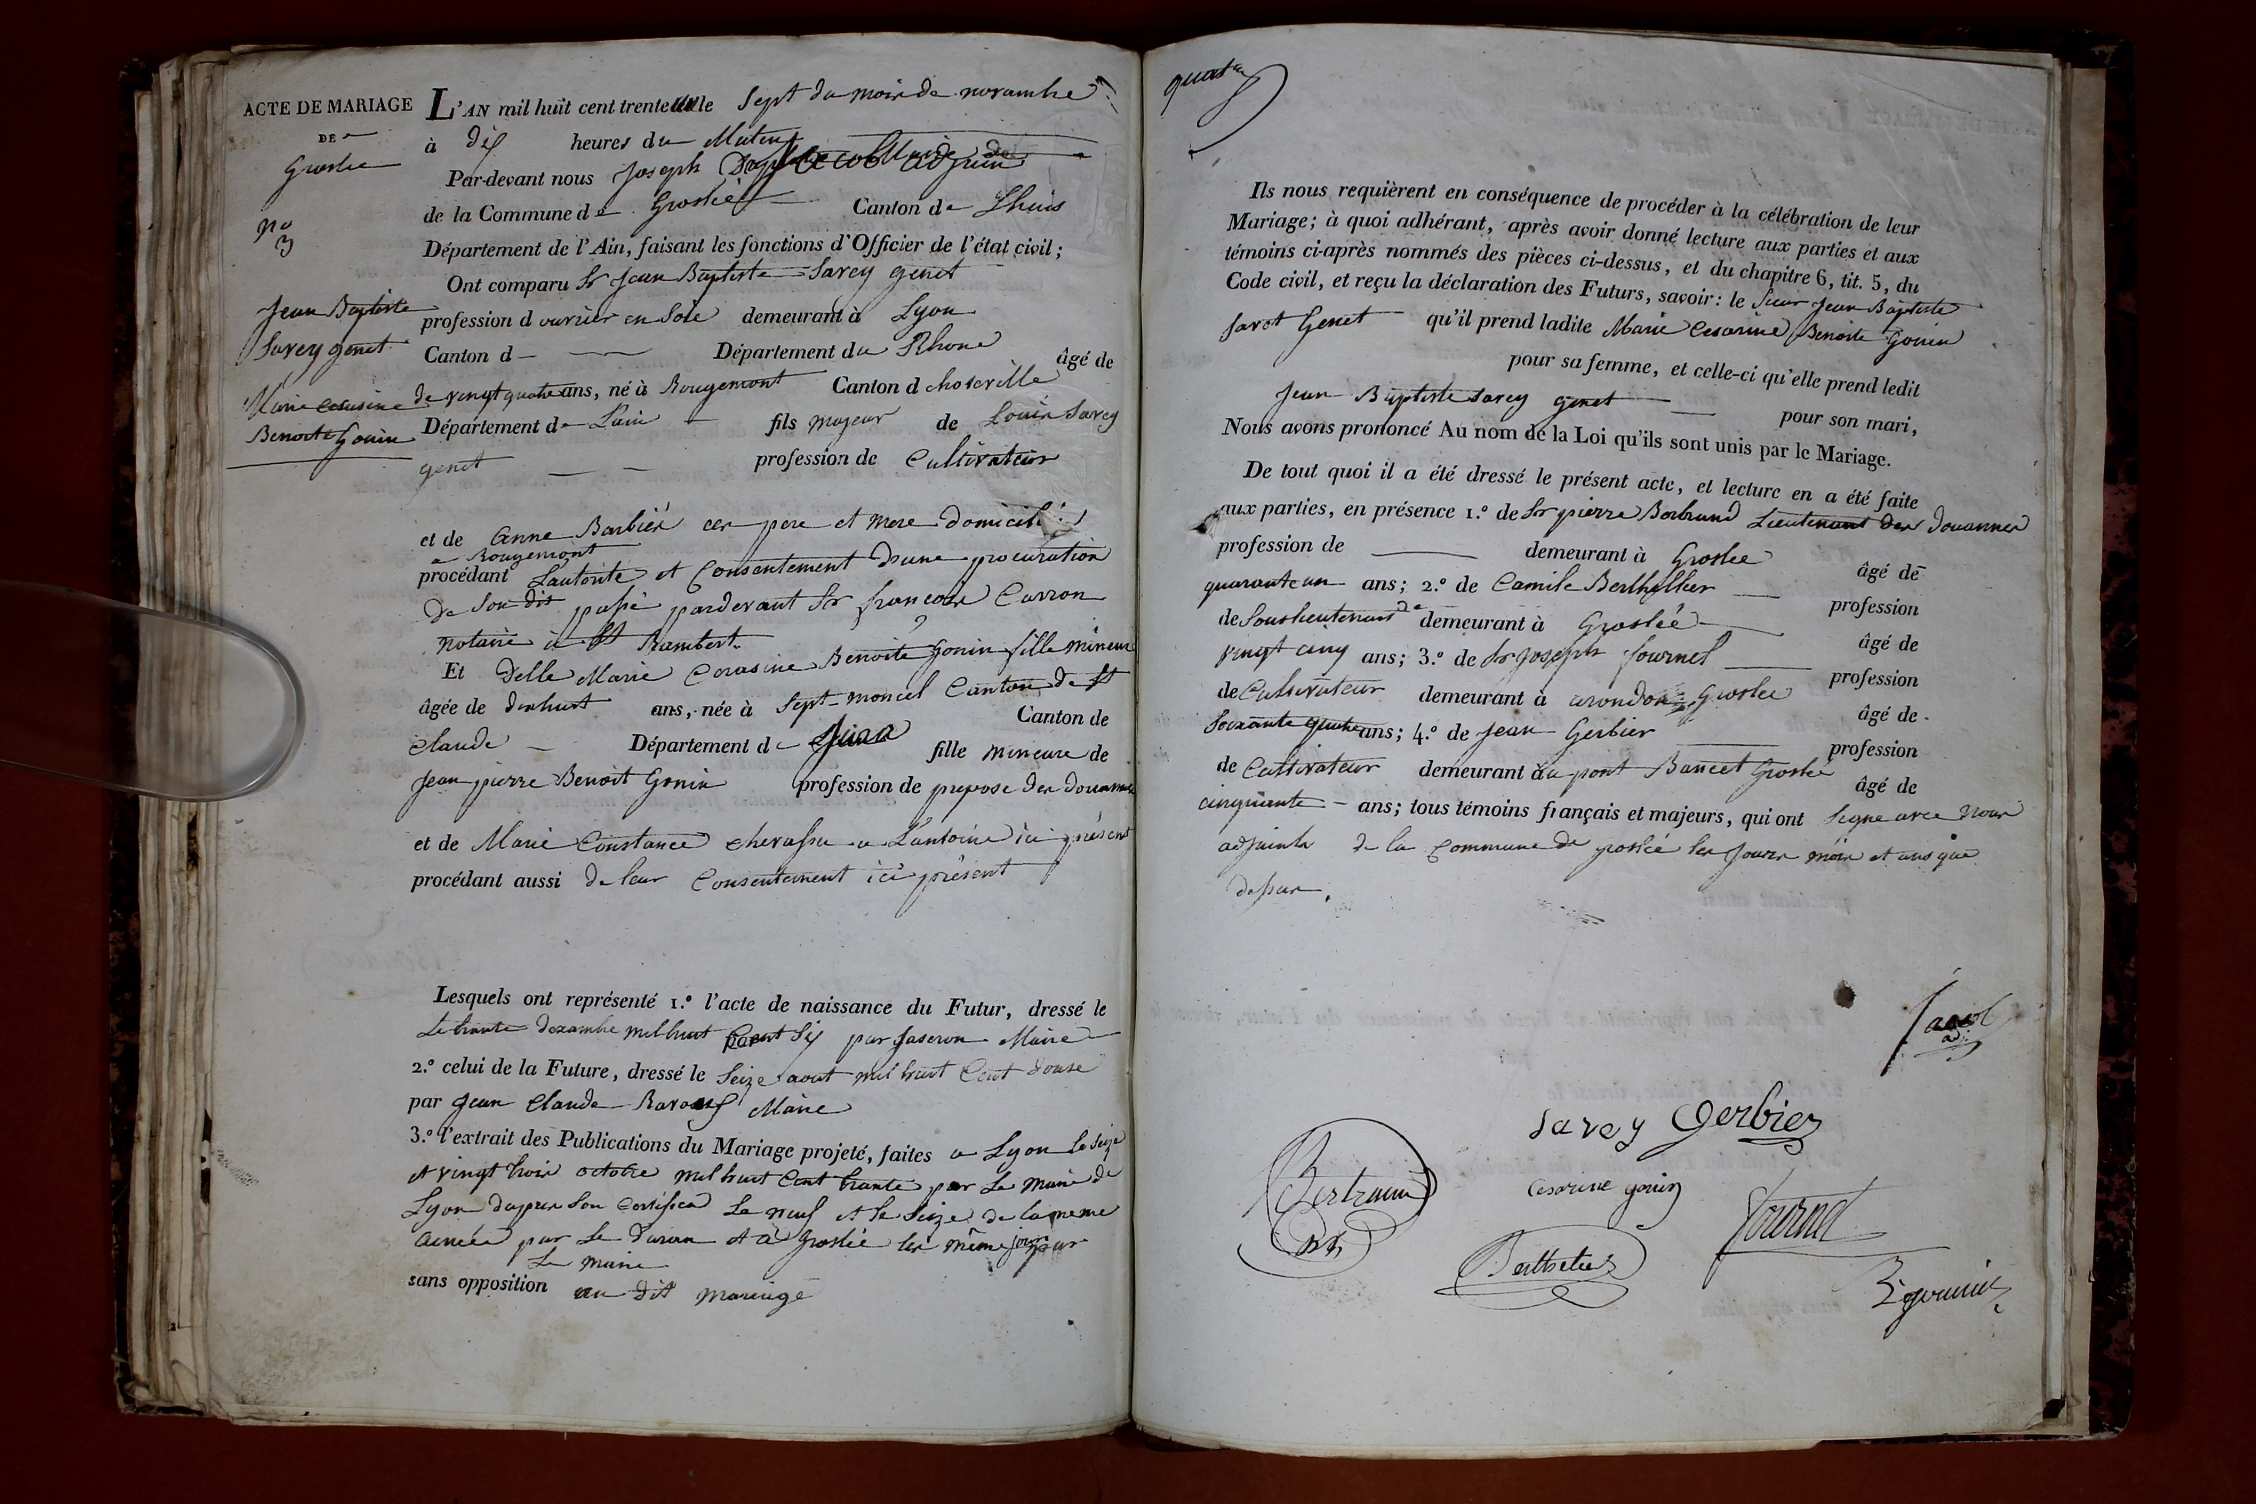 ACTE DE MARIAGE
DE
Groslée
no
3
Jean Baptiste
Savey genet
Marie Cesarine
Benoite Gonin
L'AN mil huit cent trente le Sept du mois de novambre
à dix heures du Matin
Par-devant nous Joseph adjoint
de la Commune de Groslée Canton de Lhuis
Département de l'Ain, faisant les fonctions d'Officier de l'état civil;
Ont comparu Sr Jean Baptiste Savey genet
profession d ouvrier en Soie demeurant à Lyon
Canton d Département du Rhone âgé de
de vingt quatre ans, né à Rougemont Canton d choteville
Département de Lain fils majeur de Louis Savey
genet profession de Cultivateur
et de Anne Barbier ces pere et mere domicilié
a Rougemont
procédant Lautorite et Consentement dune procuration
de Son dit passé pardevant Sr francois Carron
notaire à St Rambert.
Et delle Marie Cerasine Benoite Gonin fille mineure
âgée de dix huit ans, née à Sept-moncel Canton de St
Canton de
Claude Département de Jura fille mineure de
Jean pierre Benoit Gonin profession de prepose des douannes
et de Marie Constance chevassu a Lantoine ici présent
procédant aussi de leur Consentement ici présent
Lesquels ont représenté 1.º l'acte de naissance du Futur, dressé le
Le trante dezambre mil huit Cent Six par Maire
2.º celui de la Future, dressé le Seize aout mil huit Cent douse
par Jean Claude Maire
3.º l'extrait des Publications du Mariage projeté, faites a Lyon le Seize
et vingt trois octobre mil huit Cent trante par Le maire de
Lyon dapres Son Certificat Le neuf et le Seize de la meme
année par Le et a Groslée les même jour par
Le maire
sans opposition au dit mariage
Ils nous requièrent en conséquence de procéder à la célébration de leur
Mariage; à quoi adhérant, après avoir donné lecture aux parties et aux
témoins ci-après nommés des pièces ci-dessus, et du chapitre 6, tit. 5, du
Code civil, et reçu la déclaration des Futurs, savoir: le Sieur Jean Baptiste
Savet Genet qu'il prend ladite Marie Cesarine Benoite Gonin
pour sa femme, et celle-ci qu'elle prend ledit
Jean Baptiste Savey genet pour son mari,
Nous avons prononcé Au nom de la Loi qu'ils sont unis par le Mariage.
De tout quoi il a été dressé le présent acte, et lecture en a été faite
aux parties, en présence 1.º de Sr pierre Berbrand Lieutenant des douannes
profession de demeurant à Groslee âgé de
quarante un ans; 2.º de Camile Berthellier profession
de Souslieutenant de demeurant à Groslée âgé de
vingt cinq ans; 3.º de Sr Joseph fournel profession
de Cultivateur demeurant à Groslee âgé de
Soixante quatre ans; 4.º de Jean Gerbier profession
de Cultivateur demeurant à au pont Bancet Groslée âgé de
cinquante ans; tous témoins français et majeurs, qui ont Signe avec nous
adjoints de la Commune de groslée les jours mois et ans que
dessus.
Savey Gerbier
Bertrand
Cesarine gonin
fournel
Berthelier